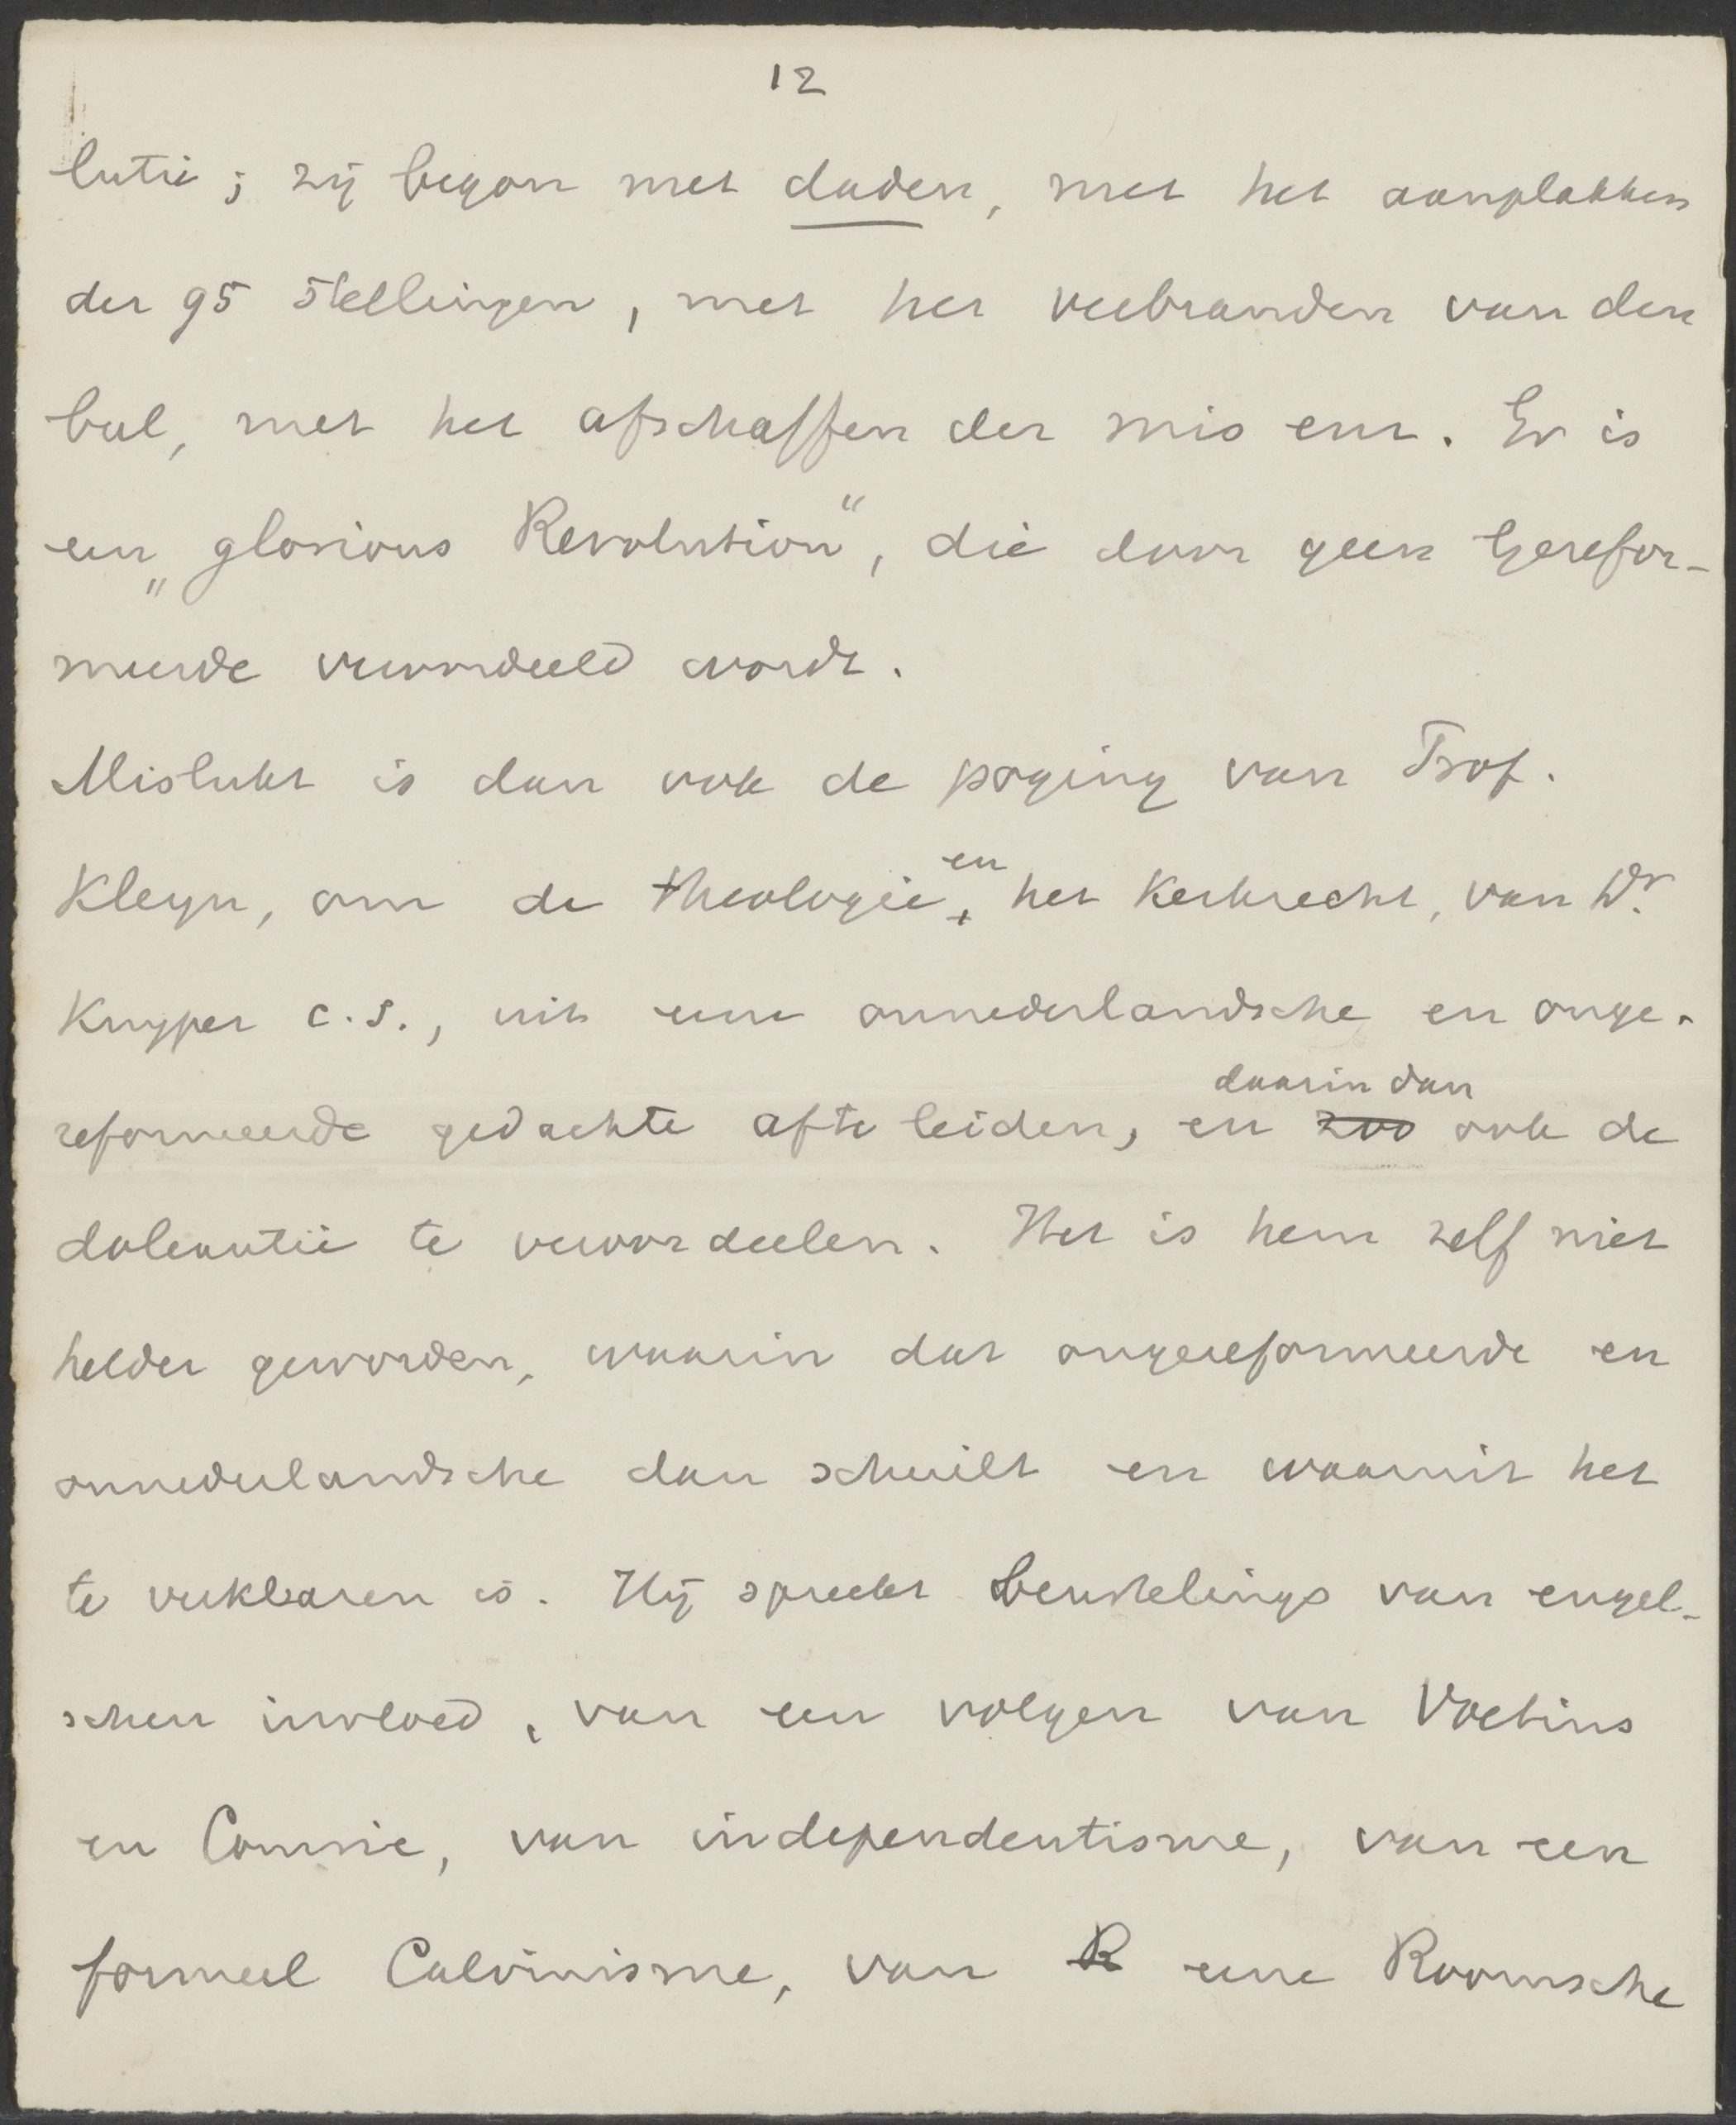 12
lutie; zij begon met daden, met het aanplakken
der 95 stellingen, met het verbranden van den
bul, met het afschaffen der mis enz. Er is
een „glorious Revolution“, die door geen Gerefor-
meerde veroordeeld wordt.
Mislukt is dan ook de poging van Prof.
Kleyn, om de theologie en het Kerkrecht, van Dr.
Kuyper c.s., uit eene onnederlandsche en onge-
daarin dan
reformeerde gedachte afte leiden, en zoo ook de
doleantie te veroordeelen. Het is hem zelf niet
helder geworden, waarin dat ongereformeerde en
onnederlandsche dan schuilt en waaruit het
te verklaren is. Hij spreekt beurtelings van engel-
schen invloed, van een volgen van Voetius
en Comrie, van independentisme, van een
formeel Calvinisme, van R eene Roomsche